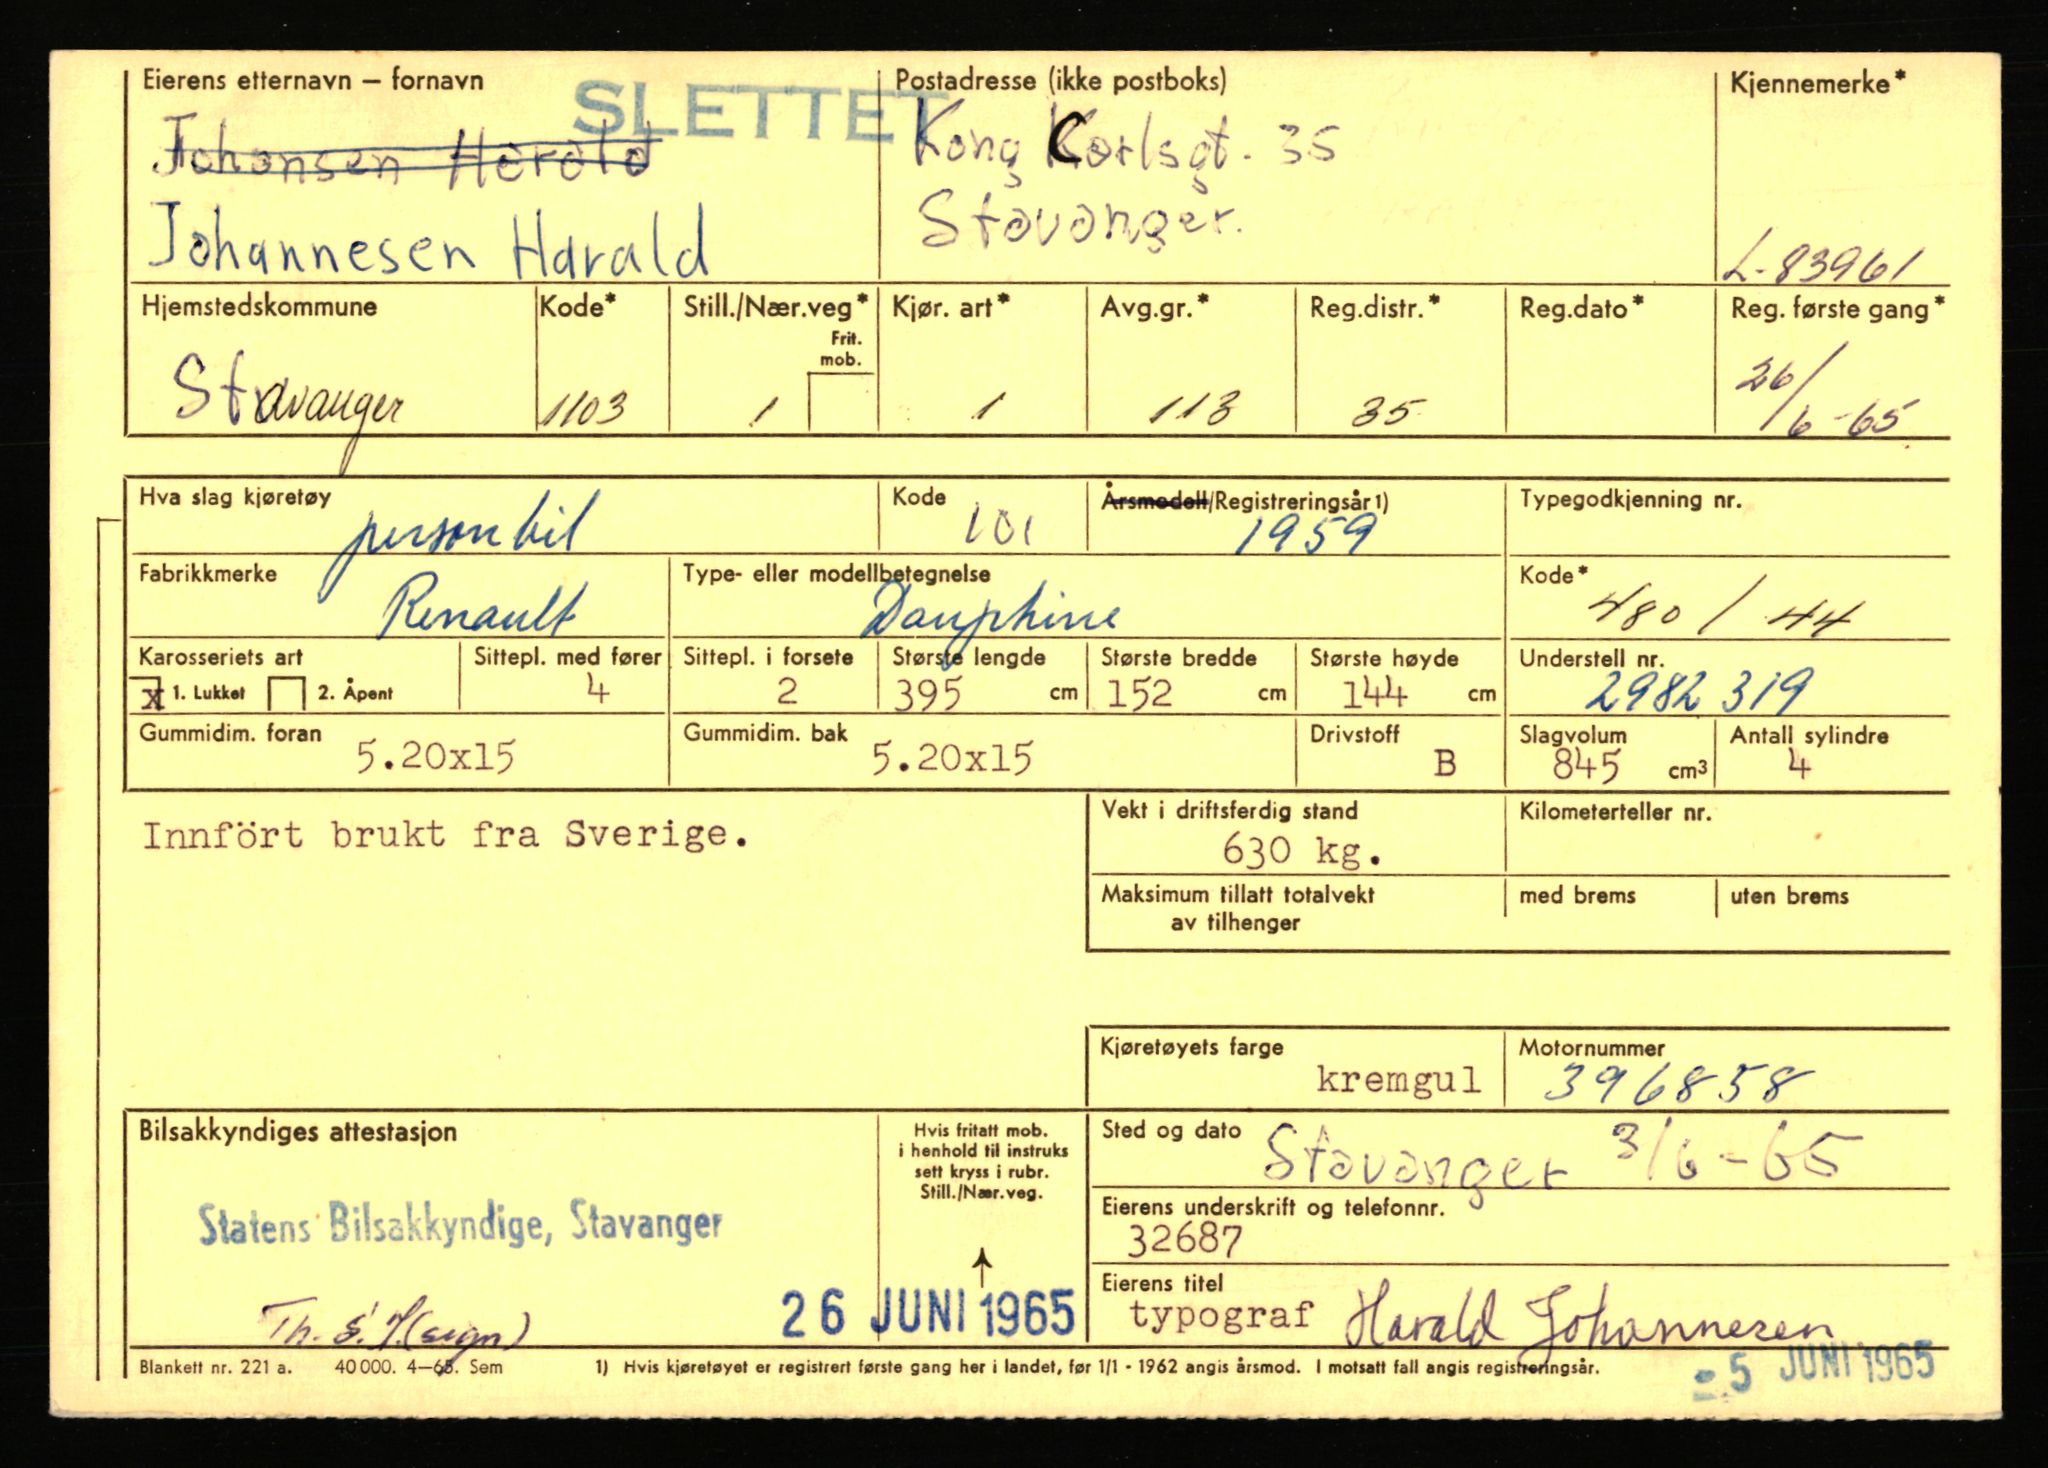 Eierens etternavn – fornavn
SLETTET
Postadresse (ikke postboks)
Kjennemerke*
Johansen Harald
Kong Carlsgt. 35
Johannesen Harald
Stavanger.
L-83961
Hjemstedskommune
Kode*
Still./Nær.veg*
Frit. mob.
Kjør. art*
Avg.gr.*
Reg.distr.*
Reg.dato*
Reg. første gang*
Stavanger
1103
1
1
113
35
26/6-65
Hva slag kjøretøy
Kode
Årsmodell/Registreringsår 1)
Typegodkjenning nr.
personbil
101
1959
Fabrikkmerke
Type- eller modellbetegnelse
Kode*
Renault
Dauphine
480/44
Karosseriets art
Sittepl. med fører
Sittepl. i forsete
Største lengde
Største bredde
Største høyde
Understell nr.
x 1. Lukket 2. Åpent
4
2
395 cm
152 cm
144 cm
2982319
Gummidim. foran
Gummidim. bak
Drivstoff
Slagvolum
Antall sylindre
5.20x15
5.20x15
B
845 cm3
4
Innfört brukt fra Sverige.
Vekt i driftsferdig stand
Kilometerteller nr.
630 kg.
Maksimum tillatt totalvekt
av tilhenger
med brems
uten brems
Kjøretøyets farge
Motornummer
kremgul
396858
Bilsakkyndiges attestasjon
Hvis fritatt mob.
i henhold til instruks
sett kryss i rubr.
Still./Nær.veg.
Sted og dato
Stavanger 3/6-65
Statens Bilsakkyndige, Stavanger
Eierens underskrift og telefonnr.
32687
Eierens titel
typograf Harald Johannesen
26 JUNI 1965
(sign)
Blankett nr. 221 a. 40 000. 4–65. Sem
1) Hvis kjøretøyet er registrert første gang her i landet, før 1/1 - 1962 angis årsmod. I motsatt fall angis registreringsår.
- 5 JUNI 1965